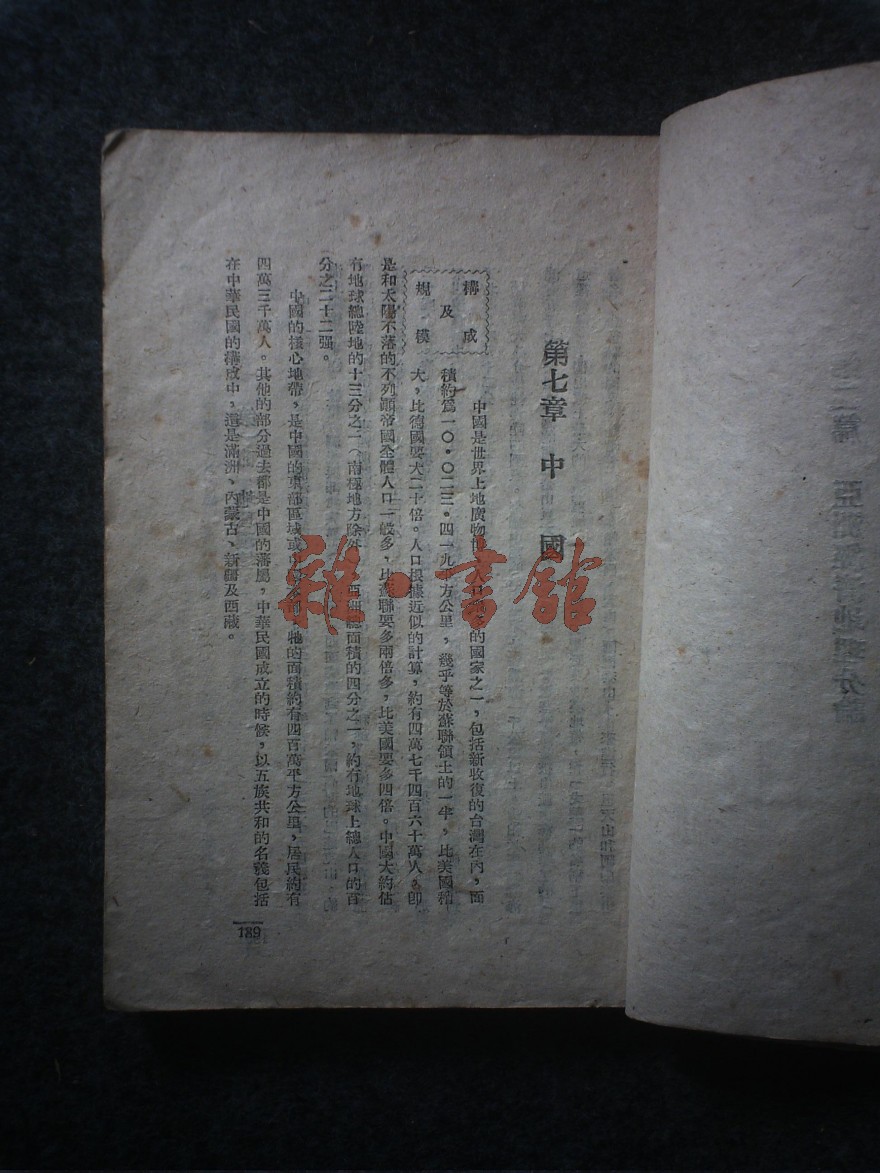 第七章 中國
構成
及
規模
中國是世界上地廣物博人口衆多的國家之一，包括新收復的台灣在內，面
積約爲一〇・〇二三・四一九平方公里，幾乎等於蘇聯領土的一半，比美國稍
大，比德國要大二十倍。人口根據近似的計算，約有四萬七千四百六十萬人，卽
是和太陽不落的不列顛帝國全體人口一般多，比蘇聯要多兩倍多，比美國要多四倍。中國大約佔
有地球總陸地的十三分之一（南極地方除外），亞洲總面積的四分之一，約有地球上總人口的百
分之二十二强。
中國的核心地帶，是中國的東部區域或 牠的面積約有四百萬平方公里，居民約有
四萬三千萬人。其他的部分過去都是中國的藩屬，中華民國成立的時候，以五族共和的名義包括
在中華民國的構成中，這是滿洲、內蒙古、新疆及西藏。
189
雜・書館